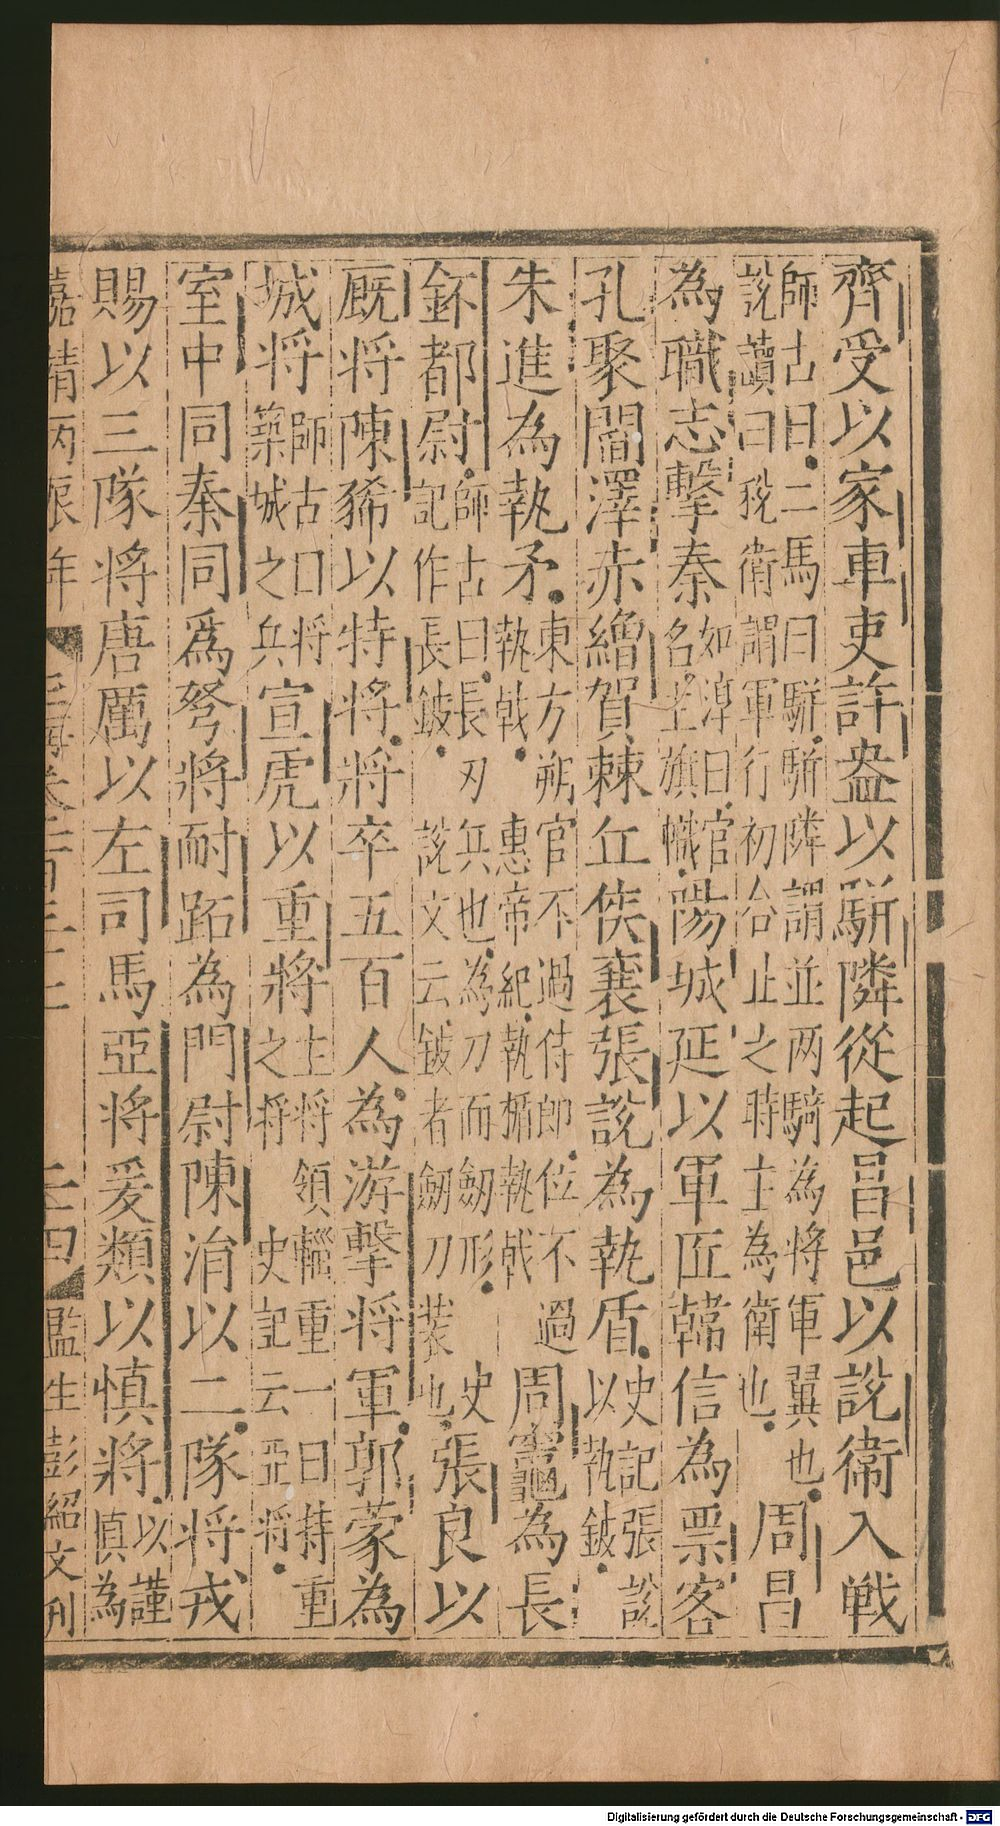 齊受以家車吏許盎以駢隣從起昌邑以說衞入戰
師古曰二馬曰駢駢隣謂並两騎為將軍翼也周昌
說讀曰稅衞謂軍行初舍止之時主為衞也
為職志擊秦如淳曰官名主旗幟陽城延以軍匠韓信為票客
孔聚閻澤赤繒賀棘丘侯襄張說為執盾史記張說以執鈹
朱進為執矛東方朔官不過侍郎位不過執戟惠帝紀執楯執戟周竈為長
鈈都尉師古曰長刃兵也為刀而劒形史記作長鈹說文云鈹者劒刀裝也張良以
厩將陳豨以特將將卒五百人為游擊將軍郭蒙為
城將師古曰將築城之兵宣虎以重將主將領輜重一曰持重之將史記云亞將
室中同秦同爲弩將耐跖為門尉陳涓以二隊將戎
賜以三隊將唐厲以左司馬亞將爰類以慎將以謹慎為
嘉靖丙辰年
監生彭紹文刋
Digitalisierung gefördert durch die Deutsche Forschungsgemeinschaft - DFG